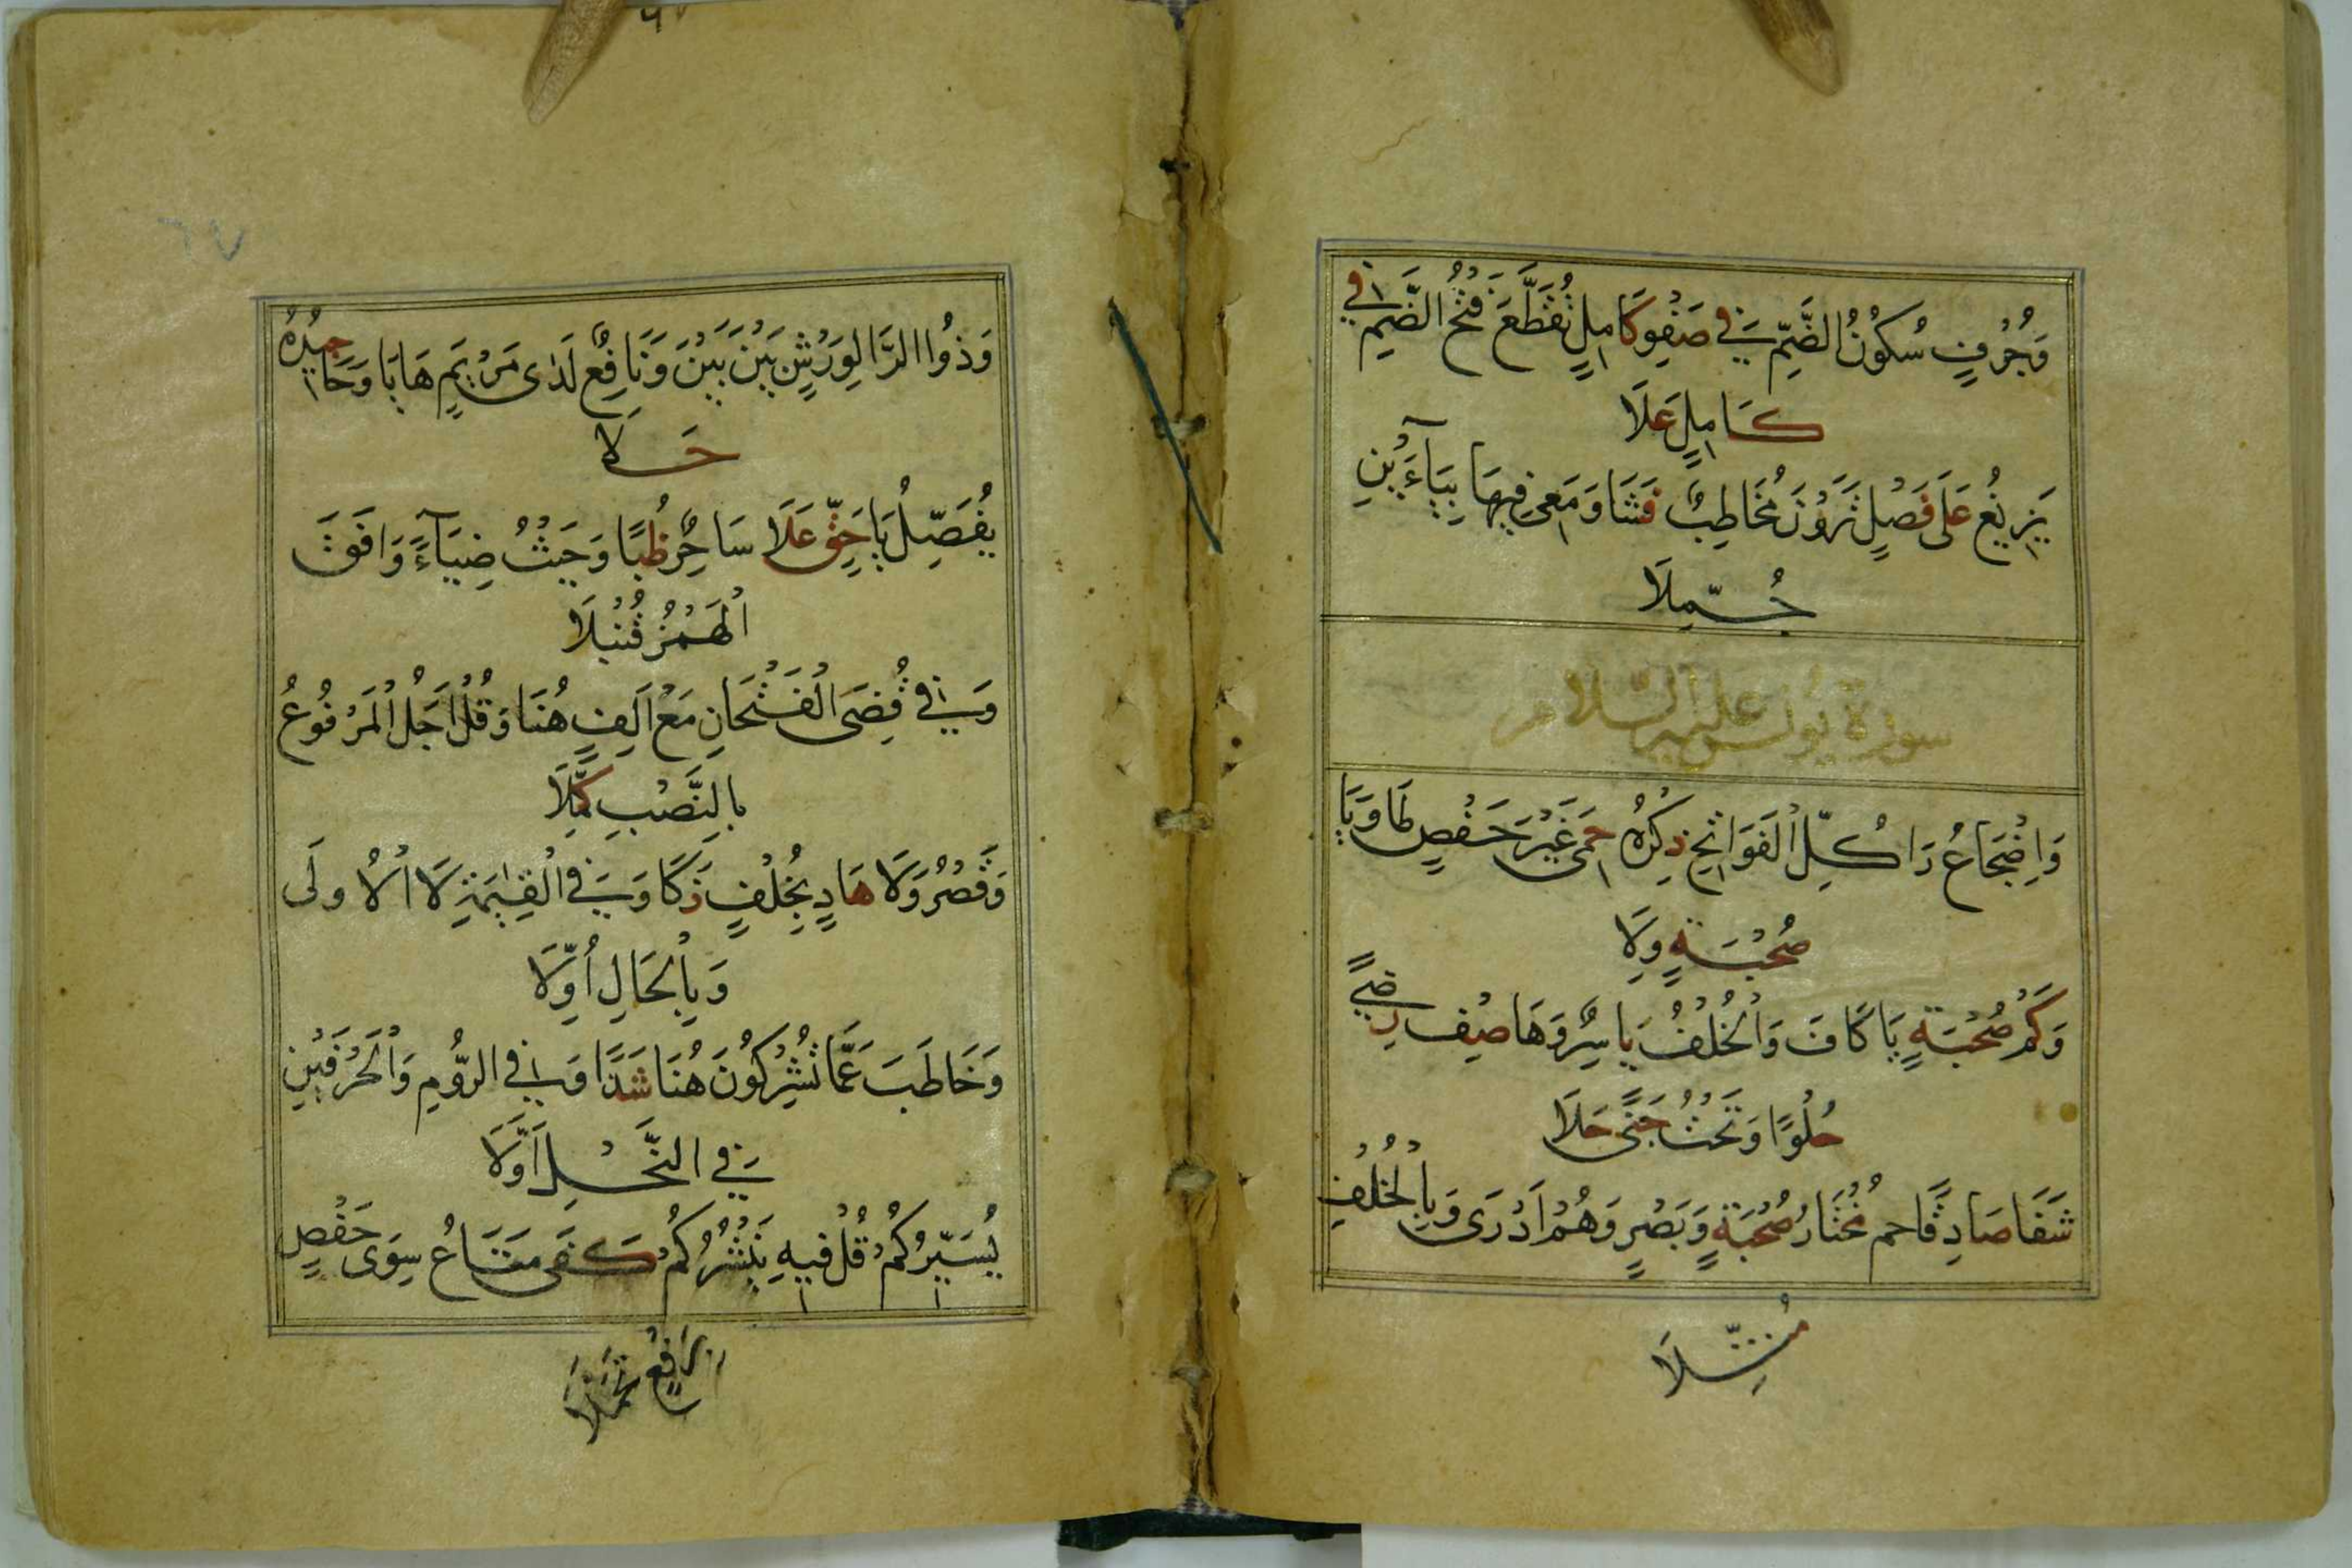 وَجُرُفٍ سُكُونُ الضَّمِّ فِي صَفْوِ كَامِلٍ تُقَطَّعَ فَتْحُ الضَّمِّ فِي
كَامِلٍ عَلَا
يَزِيغُ عَلَى فَصْلٍ تَرَوْنَ مُخَاطِبٌ فَشَا وَمَعِي فِيهَا بِيَآءَيْنِ
جُمِّلَا
سورة يونس عليه السلام
وَاِضْجَاعُ رَا كُلِّ الْفَوَاتِحِ ذِكْرُهُ حِمًى غَيْرَ حَفْصٍ طَا وَيَا
صُحْبَةٍ وِلَا
وَكَمْ صُحْبَةٍ يَا كَافَ وَالْخُلْفُ يَاسِرٌ وَهَا صِفْ رِضًى
حُلْوًا وَتَحْتُ جَنًى حَلَا
شَفَا صَادِقًا حم مُخْتَارُ صُحْبَةٍ وَبَصْرٍ وَهُمْ اَدْرَى وَبِالْخُلْفِ
مُثِّلَا
وَذُوا الرَّا لِوَرْشٍ بَيْنَ بَيْنَ وَنَافِعٌ لَدٰى مَرْيَمٍ هَا يَا وَحَا جِيدُهُ
حَلَا
يُفَصِّلُ يَا حَقٍّ عَلَا سَاحِرٌ ظُبًا وَحَيْثُ ضِيَآءً وَافَقَ
الْهَمْزُ قُنْبُلَا
وَفِي قُضِيَ الْفَتْحَانِ مَعْ اَلِفٍ هُنَا وَقُلْ اَجَلُ الْمَرْفُوعُ
بِالنَّصْبِ كُمِّلَا
وَقَصْرُ وَلَا هَادٍ بِخُلْفٍ زَكَا وَفِي الْقِيٰمَةِ لَا الْاُولَى
وَبِالْحَالِ اُوِّلَا
وَخَاطَبَ عَمَّا تُشْرِكُونَ هُنَا شَذًا وَفِي الرُّومِ وَالْحَرْفَيْنِ
فِي النَّحْلِ اَوَّلَا
يُسَيِّرُكُمْ قُلْ فِيهِ يَنْشُرُكُمْ كَفَى مَتَاعُ سِوَى حَفْصٍ
بِرَفْعٍ تَحَمَّلَا